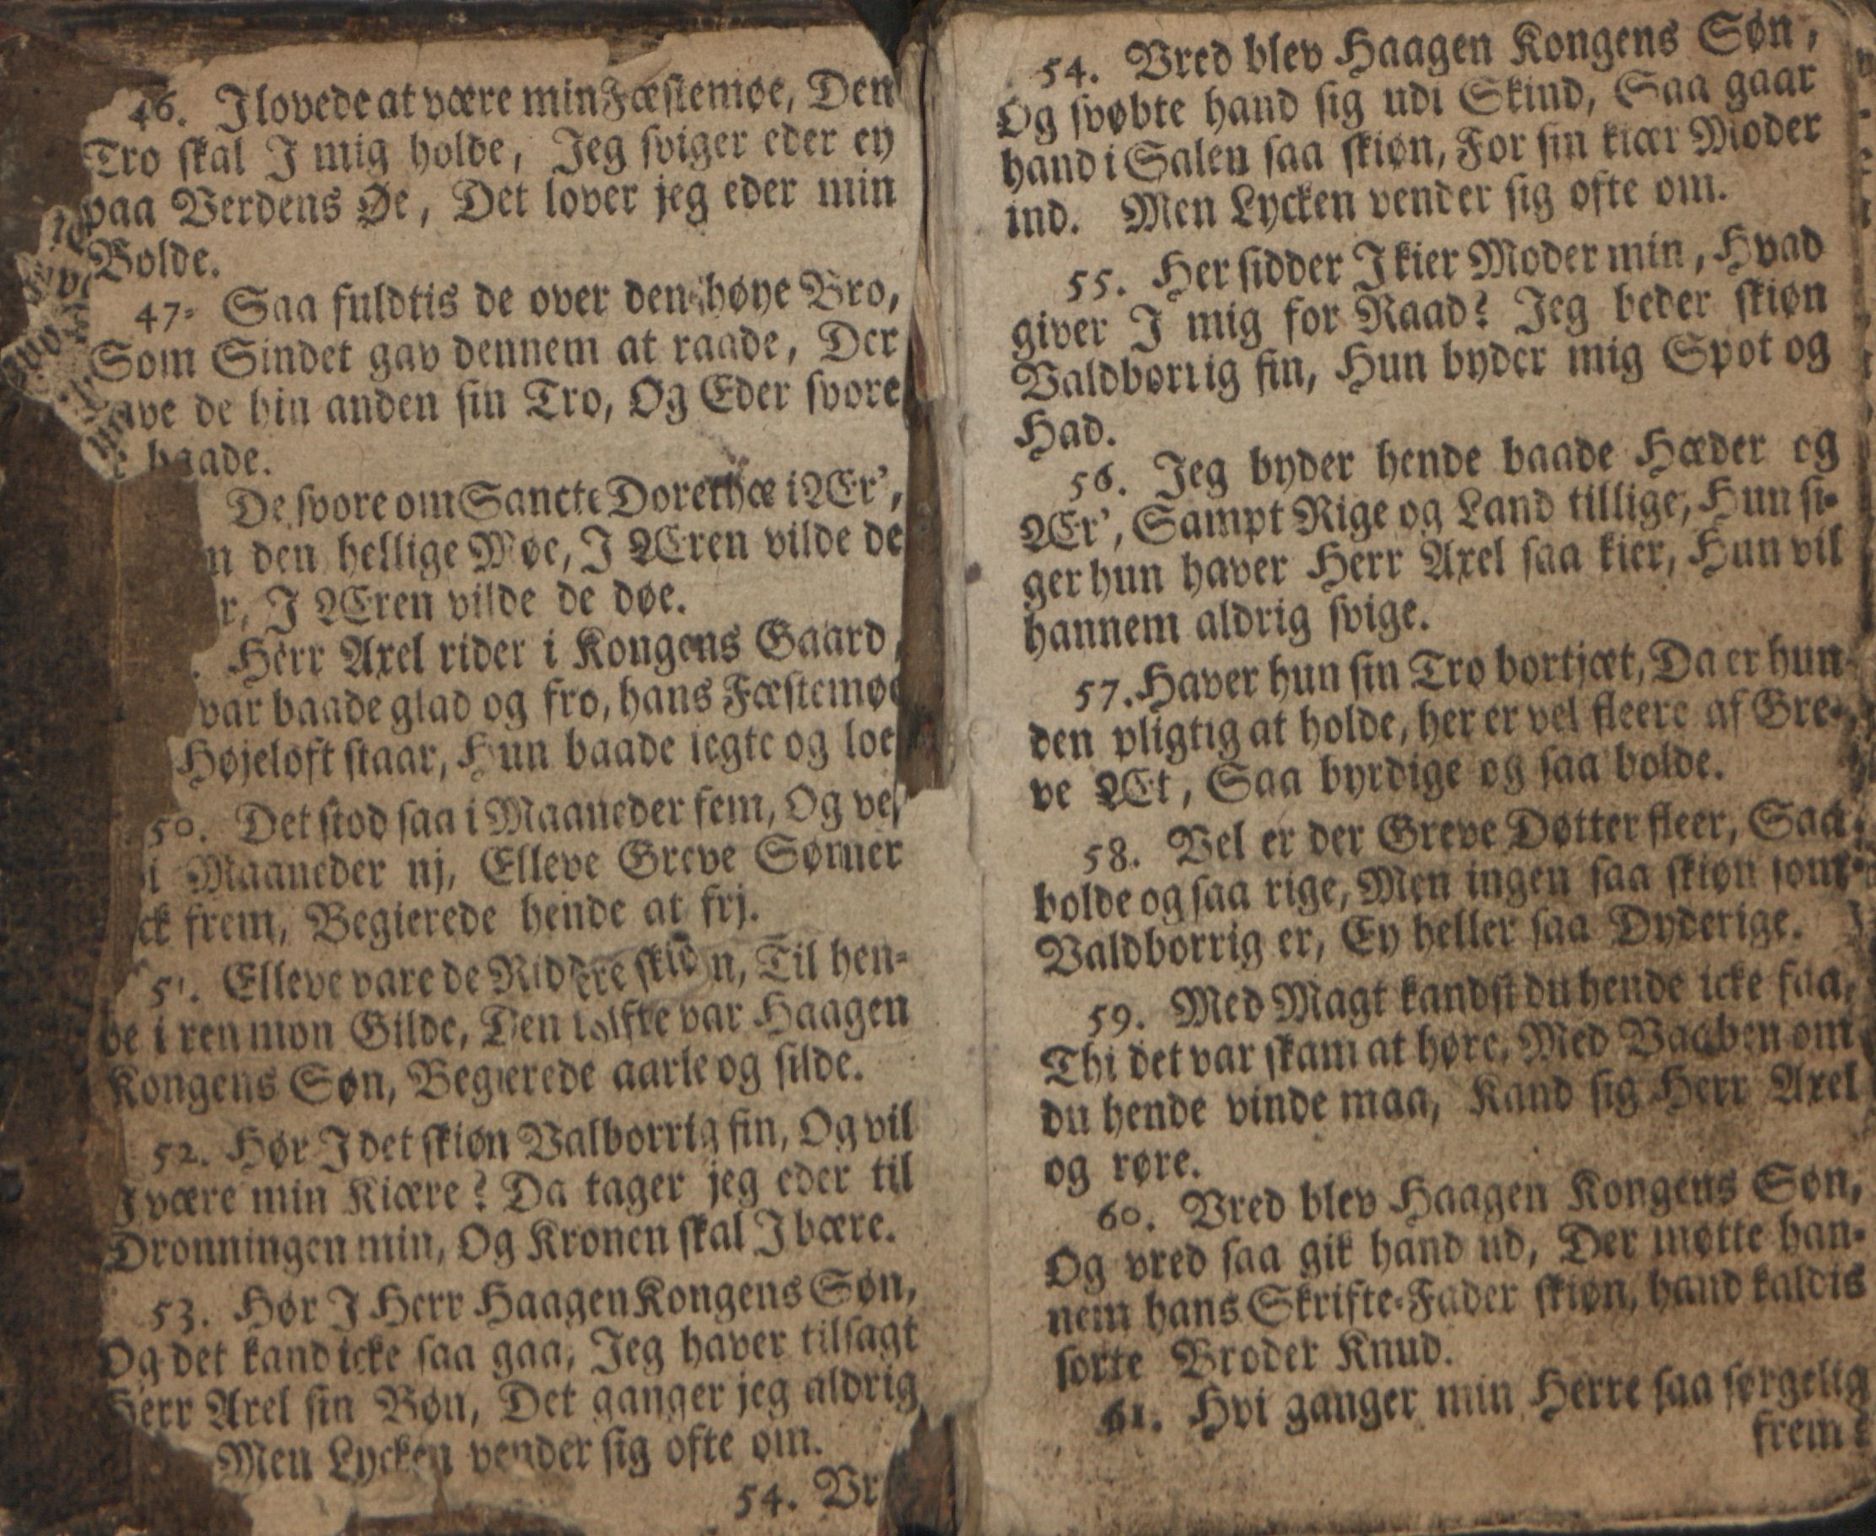 46. J lovede at være min Fæstemøe, Den
Tro skal J mig holde, Jeg sviger eder ey
paa Verdens Øe, Det lover jeg eder min
Bolde.
47. Saa fuldtis de over den høye Bro,
Som Sindet gav dennem at raade, Der
ave de hin anden sin Tro, Og Eder svore
baade.
De svore om Sancte Dorethæ i Ær',
n den hellige Møe, J Æren vilde de
r, J Æren vilde de døe.
Herr Axel rider i Kongens Gaard,
var baade glad og fro, hans Fæstemøe
Højeloft staar, Hun baade legte og loe
50. Det stod saa i Maaneder fem, Og vel
i Maaneder nj, Elleve Greve Sønner
ck frem, Begierede hende at frj.
51. Elleve vare de Riddere skiøn, Til hen-
de i ren mon Gilde, Den tolfte var Haagen
Kongens Søn, Begierede aarle og silde.
52. Hør J det skiøn Valborrig fin, Og vil
J være min Kiære? Da tager jeg eder til
Dronningen min, Og Kronen skal J bære.
53. Hør J Herr Haagen Kongens Søn,
Og det kand icke saa gaa, Jeg haver tilsagt
Herr Axel sin Bøn, Det ganger jeg aldrig
Men Lycken vender sig ofte om.
54. Vr
54. Vred blev Haagen Kongens Søn,
Og svøbte hand sig udi Skind, Saa gaar
hand i Salen saa skiøn, For sin kiær Moder
ind. Men Lycken vender sig ofte om.
55. Her sidder J kier Moder min, Hvad
giver J mig for Raad? Jeg beder skiøn
Valdborrig fin, Hun byder mig Spot og
Had.
56. Jeg byder hende baade Hæder og
Ær', Sampt Rige og Land tillige, Hun si-
ger hun haver Herr Axel saa kier, Hun vil
hannem aldrig svige.
57. Haver hun sin Tro bortjæt, Da er hun
den pligtig at holde, her er vel fleere af Gre-
ve Æt, Saa byrdige og saa bolde.
58. Vel er der Greve Døtter fleer, Saa
bolde og saa rige, Men ingen saa skiøn som
Valdborrig er, Ey heller saa Dyderige.
59. Med Magt kandst du hende icke faa,
Thi det var skam at høre, Med Vaaben om
du hende vinde maa, Kand sig Herr Axel
og røre.
60. Vred blev Haagen Kongens Søn,
Og vred saa gik hand ud, Der møtte han-
nem hans Skrifte-Fader skiøn, hand kaldis
sorte Broder Knud.
61. Hvi ganger min Herre saa sørgelig
frem